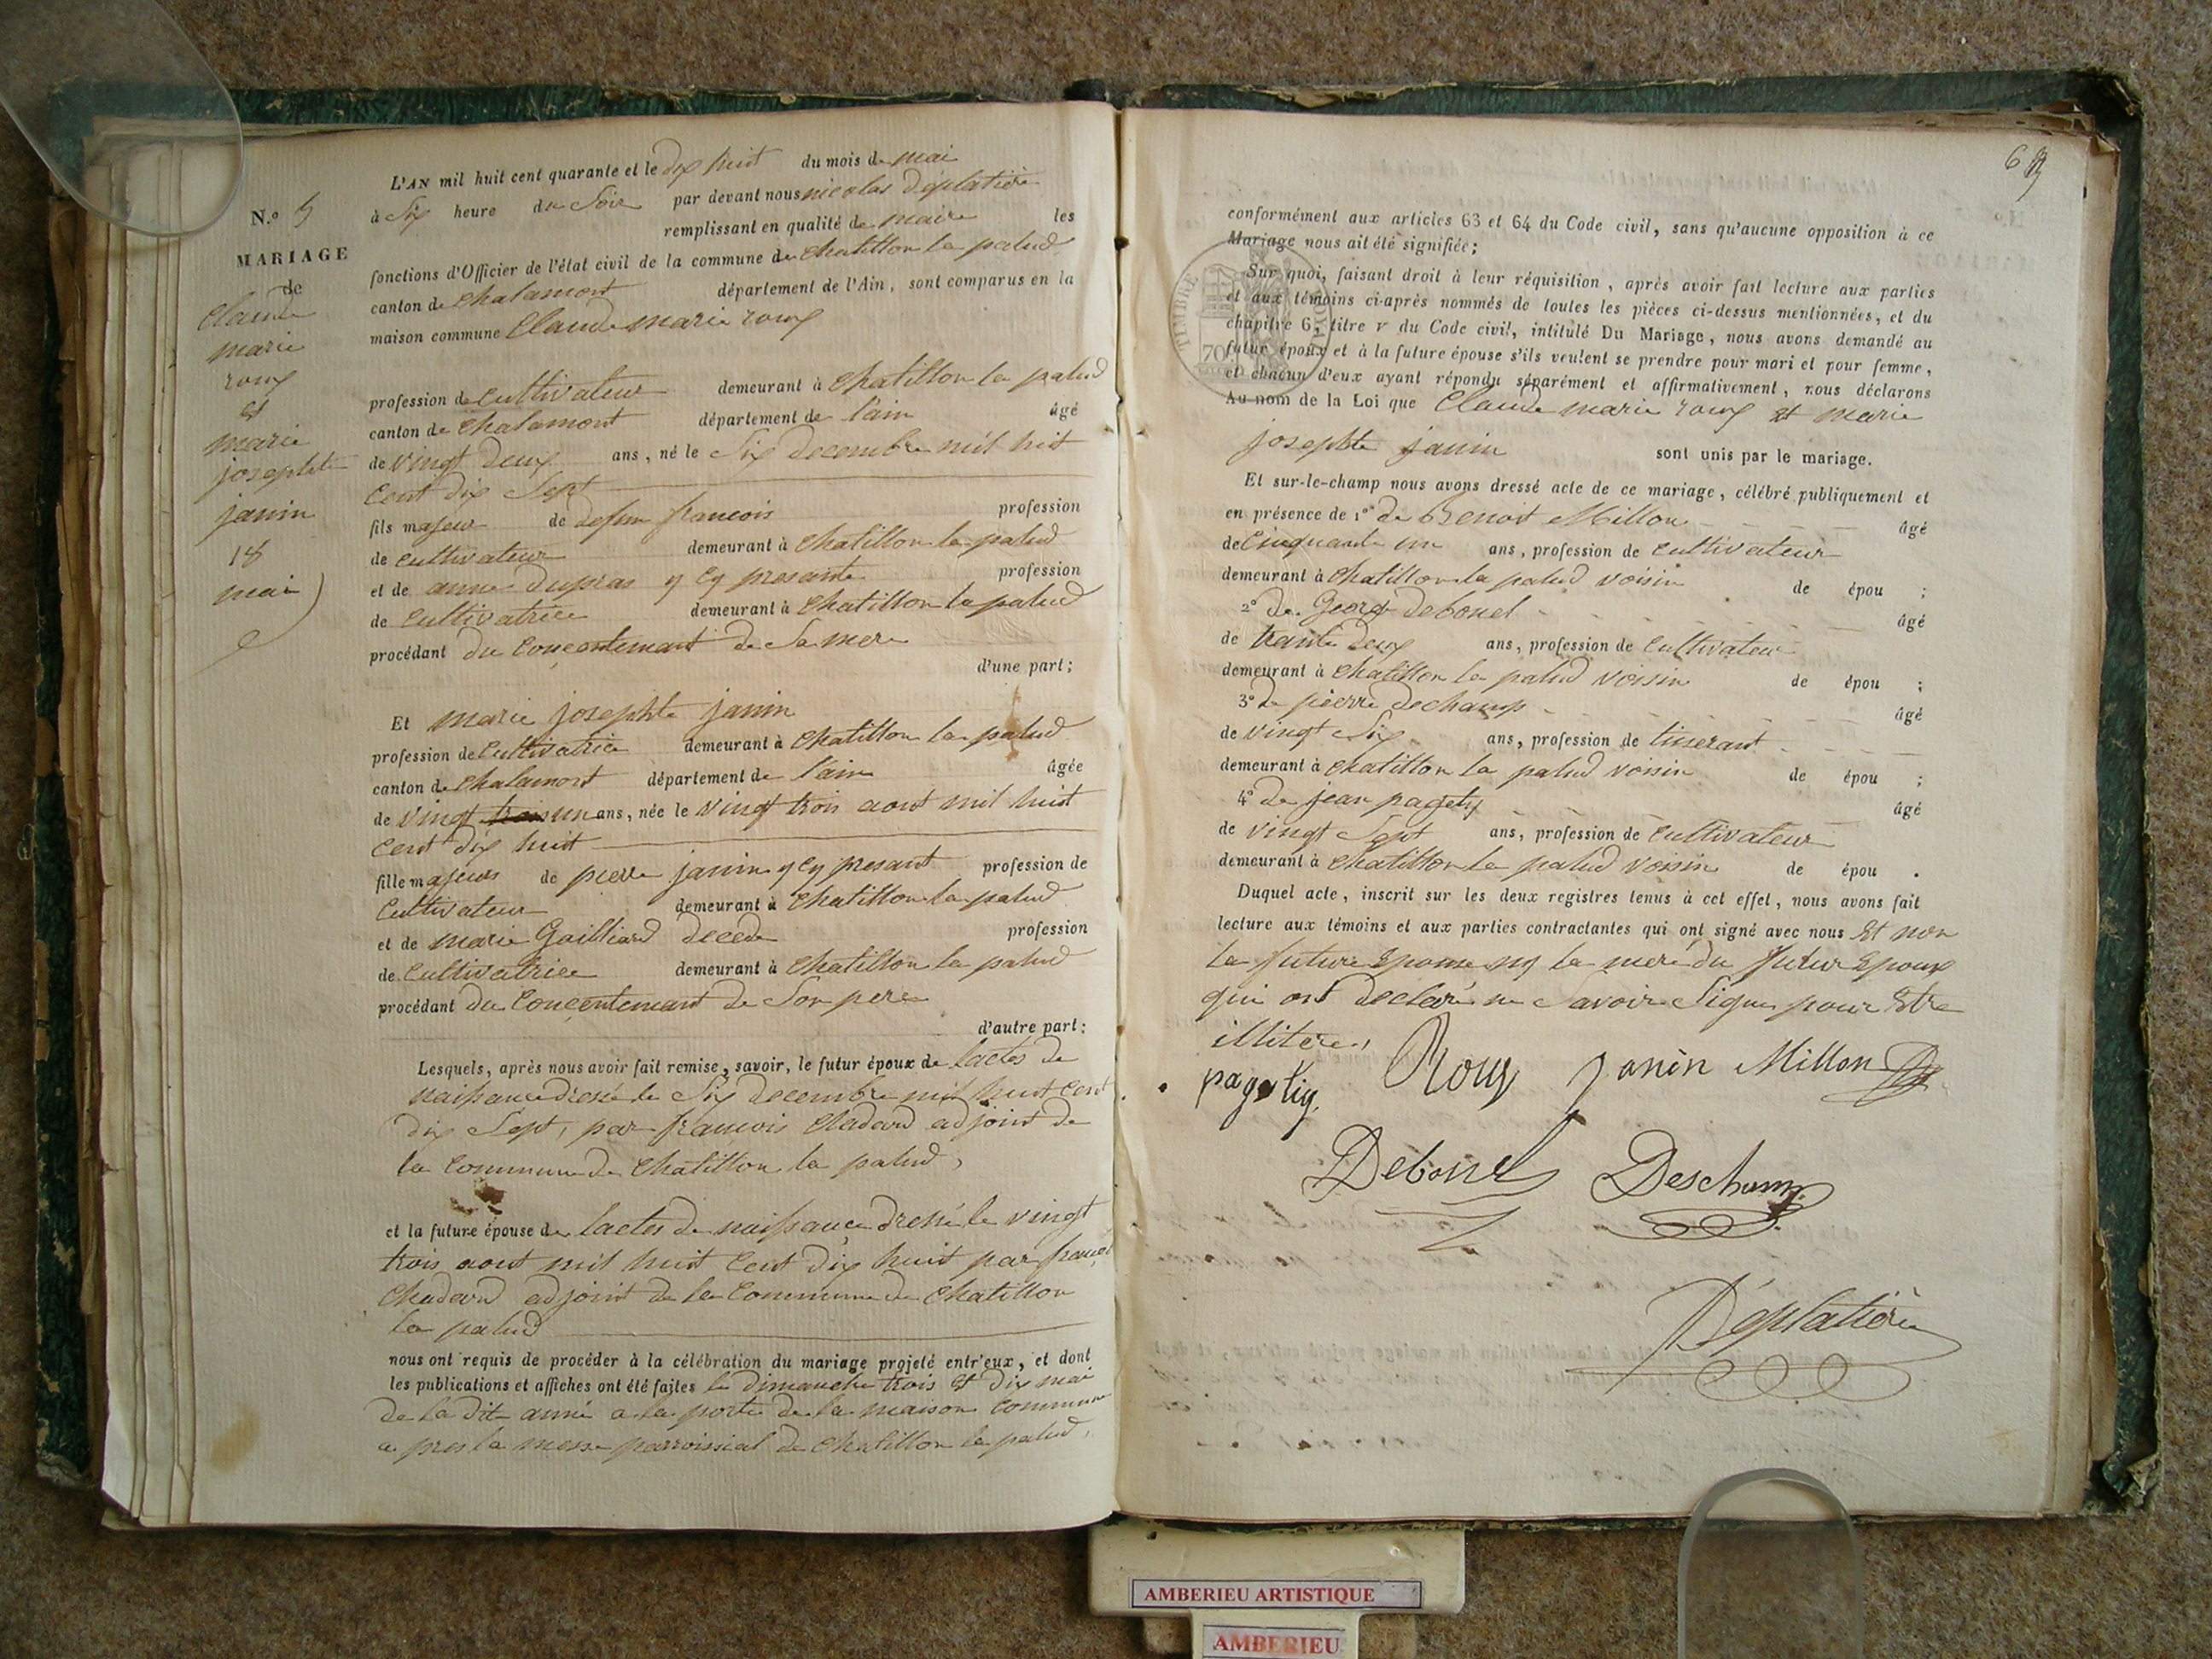 N.º 5
MARIAGE
de
Claude
marie
roux
et
marie
josephte
janin
18
mai
L'AN mil huit cent quarante et le dix huit du mois de mai
à Six heure du Soir par devant nous nicolas Déplatière
remplissant en qualité de maire les
fonctions d'Officier de l'état civil de la commune de chatillon la palud
canton de chalamont département de l'Ain, sont comparus en la
maison commune Claude marie roux
profession de cultivateur demeurant à chatillon la palud
canton de chalamont département de l'ain âgé
de vingt deux ans, né le Six decembre mil huit
Cent dix Sept
fils majeur de defun francois profession
de cultivateur demeurant à chatillon la palud
et de anne dupras y cy presante profession
de cultivatrice demeurant à chatillon la palud
procédant du Conçentement de Sa mere
d'une part;
Et marie josephte janin
profession de Cultivatrice demeurant à chatillon la palud
canton de chalamont département de l'ain âgée
de vingt trois un ans, née le vingt trois aout mil huit
Cent dix huit
fille majeur de pierre janin y cy presant profession de
Cultivateur demeurant à chatillon la palud
et de marie Gailliard decede profession
de Cultivatrice demeurant à chatillon la palud
procédant du Conçentement de Son pere
d'autre part:
Lesquels, après nous avoir fait remise, savoir, le futur époux de lactes de
naissance dressé le Six decembre mil huit cent
dix Sept, par francois Chadard adjoint de
la Commune de Chatillon la palud,
et la future épouse de lactes de naissance dressé le vingt
trois aout mil huit Cent dix huit par françois
Chadard adjoint de la Commune de Chatillon
la palud
nous ont requis de procéder à la célébration du mariage projeté entr'eux, et dont
les publications et affiches ont été faites le Dimanche trois et dix mai
de la dite anné a la porte de la maison Commune
a pres la messe parroissial de chatillon la palud,
conformément aux articles 63 et 64 du Code civil, sans qu'aucune opposition à ce
Mariage nous ait été signifiée;
TIMBRE ROYAL
70
Sur quoi, faisant droit à leur réquisition, après avoir fait lecture aux parties
et aux témoins ci-après nommés de toutes les pièces ci-dessus mentionnées, et du
chapitre 6, titre v du Code civil, intitulé Du Mariage, nous avons demandé au
futur époux et à la future épouse s'ils veulent se prendre pour mari et pour femme,
et chacun d'eux ayant répondu séparément et affirmativement, nous déclarons
Au nom de la Loi que Claude marie roux et marie
josephte janin sont unis par le mariage.
Et sur-le-champ nous avons dressé acte de ce mariage, célébré publiquement et
en présence de 1º de Benoit Millon âgé
de Cinquante un ans, profession de cultivateur
demeurant à chatillon la palud voisin de épou ;
2º de George debonel âgé
de trante deux ans, profession de Cultivateur
demeurant à chatillon la palud voisin de épou ;
3º de pierre dechamp âgé
de vingt Six ans, profession de tisserant
demeurant à chatillon la palud voisin de épou ;
4º de jean pagety âgé
de vingt Sept ans, profession de Cultivateur
demeurant à chatillon la palud voisin de épou .
Duquel acte, inscrit sur les deux registres tenus à cet effet, nous avons fait
lecture aux témoins et aux parties contractantes qui ont signé avec nous et non
la future Epouse ny la mere du futur Epoux
qui ont declaré ne Savoir Signer pour Etre
illitere,
Roux Janin Millon
Debonel Deschamp
Déplatière
AMBERIEU ARTISTIQUE
AMBERIEU